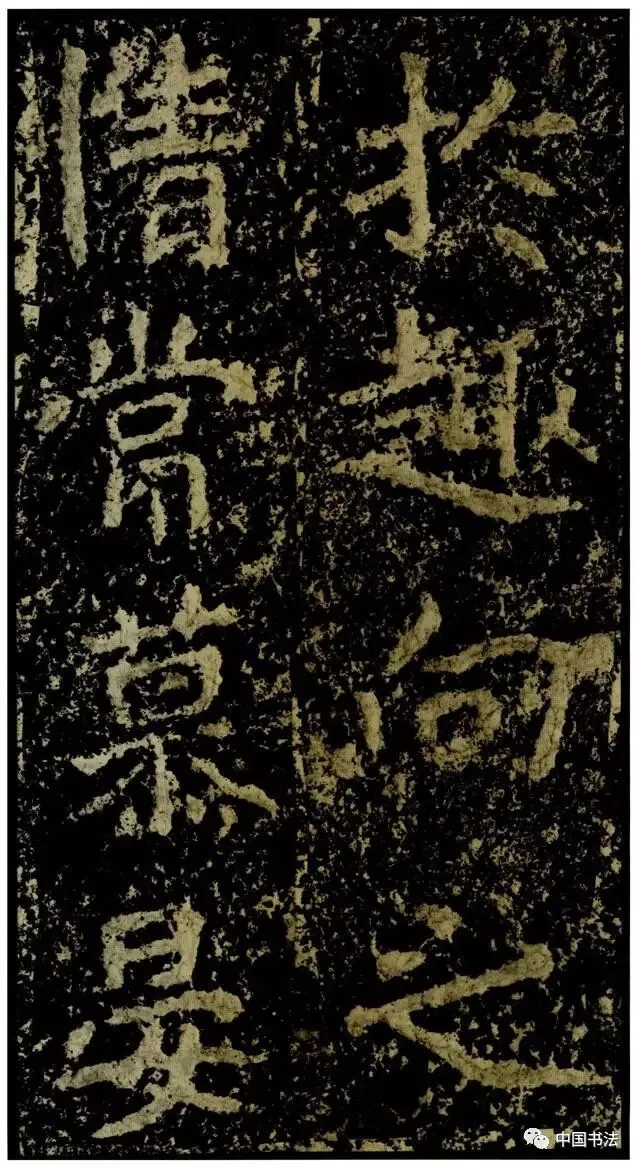 於趣向之
情常慕晏
中国书法